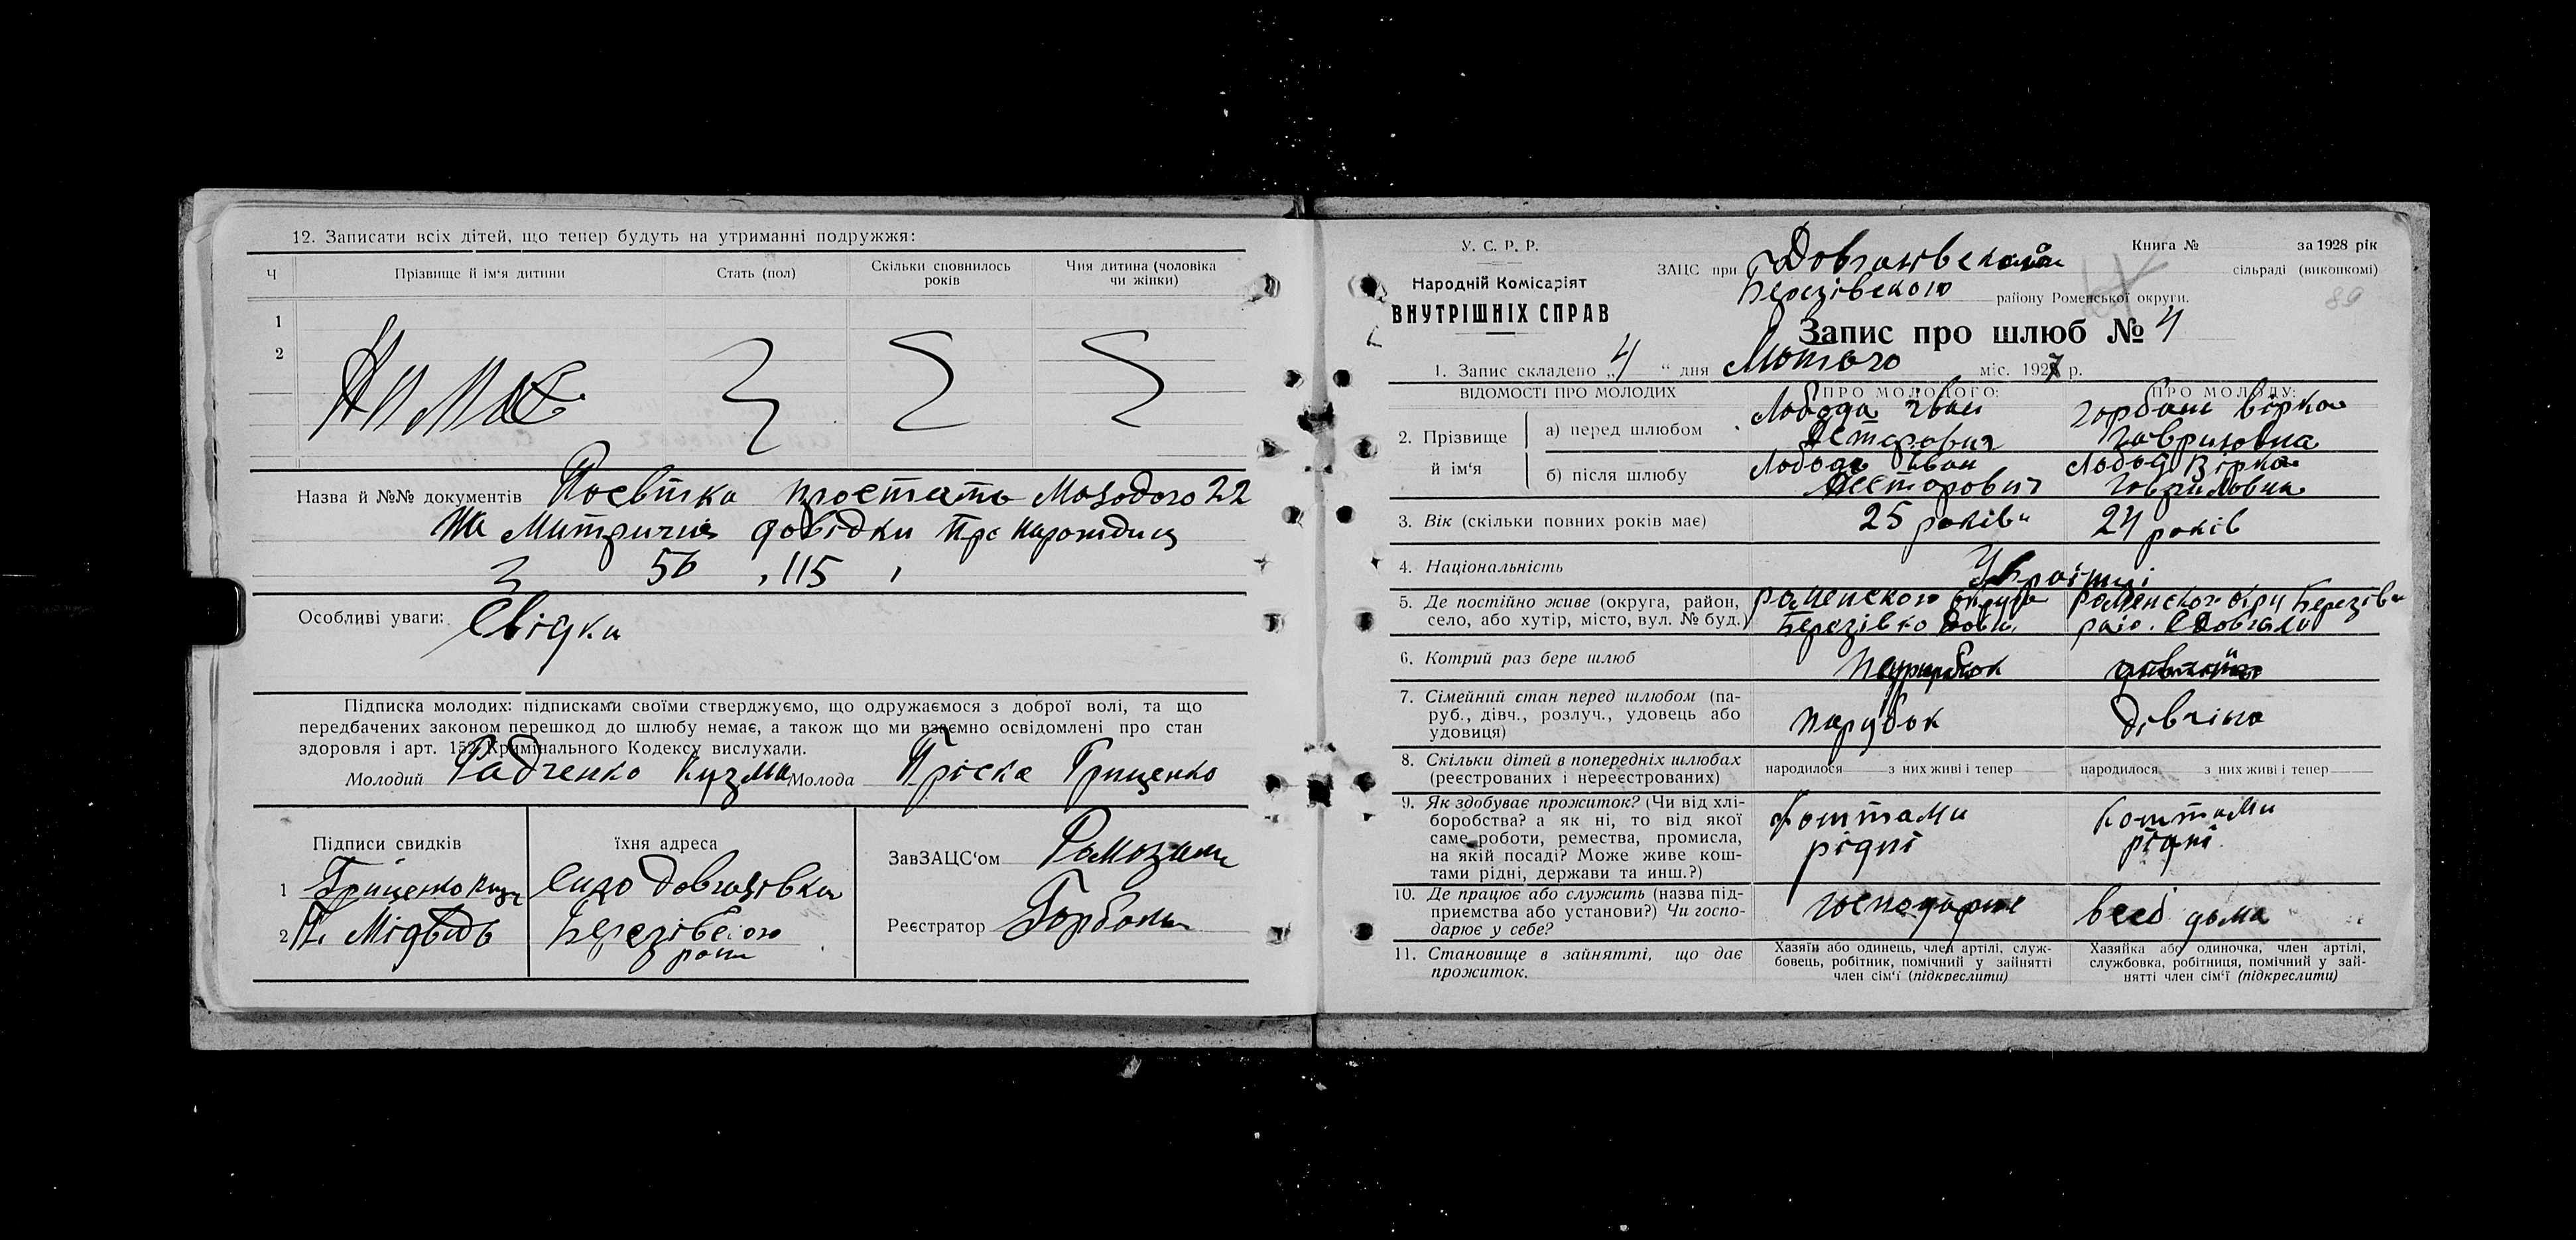 12. Записати всіх дітей, що тепер будуть на утриманні подружжя:
Ч Прізвище й ім'я дитини Стать (пол) Скільки сповнилось років Чия дитина (чоловіка чи жінки)
1
2
Назва й №№ документів Посвітка
22
Митричні довідки про народидиц
56 , 115
Особливі уваги: Свідки
Підписка молодих: підписками своїми стверджуємо, що одружаємося з доброї волі, та що
передбачених законом перешкод до шлюбу немає, а також що ми взаємно освідомлені про стан
здоровля і арт. 152 Кримінального Кодексу вислухали.
Молодий Радченко Кузма Молода Пріска Гриценко
Підписи свидків їхня адреса
ЗавЗАЦС'ом
1 Гриценко село Довгалівка
Реєстратор Горбань
2 П. Мідвідь
У. С. Р. Р.
Народній Комісаріят
ВНУТРІШНІХ СПРАВ
Книга № за 1928 рік
ЗАЦС при сільраді (виконкомі)
Березівского району Роменської округи.
89
Запис про шлюб № 4
1. Запис складено „4" дня Лютого міс. 1928 р.
ВІДОМОСТІ ПРО МОЛОДИХ ПРО МОЛОДОГО: ПРО МОЛОДУ:
2. Прізвище й ім'я
а) перед шлюбом Лобода Іван Несторович Горбань Вірка Гавриловна
б) після шлюбу Лобода Іван Несторович Лобода Вірка Гавриловна
3. Вік (скільки повних років має) 25 років 24 років
4. Національність Українці
5. Де постійно живе (округа, район,
село, або хутір, місто, вул. № буд.)
Роменского округа
Роменского окри Березів
6. Котрий раз бере шлюб
7. Сімейний стан перед шлюбом (па-
руб., дівч., розлуч., удовець або
удовиця)
парубок дівчина
8. Скільки дітей в попередніх шлюбах
(реєстрованих і нереєстрованих)
народилося з них живі і тепер народилося з них живі і тепер
9. Як здобуває прожиток? (Чи від хлі-
боробства? а як ні, то від якої
саме роботи, ремества, промисла,
на якій посаді? Може живе кош-
тами рідні, держави та инш.?)
коштами рідні коштами рідні
10. Де працює або служить (назва під-
приємства або установи?) Чи госпо-
дарює у себе?
господарює всебі дома
11. Становище в зайнятті, що дає
прожиток.
Хазяїн або одинець, член артілі, служ-
бовець, робітник, помічний у зайнятті
член сім'ї (підкреслити)
Хазяйка або одиночка, член артілі,
службовка, робітниця, помічний у зай-
нятті член сім'ї (підкреслити)